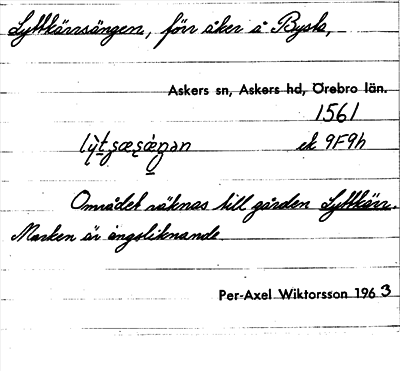 Lyttkärrsängen, förr åker å Bysta,
Askers sn, Askers hd, Örebro län.
1561
ek 9F9h
Området räknas till gården Lyttkärr.
Marken är ängsliknande.
Per-Axel Wiktorsson 1963